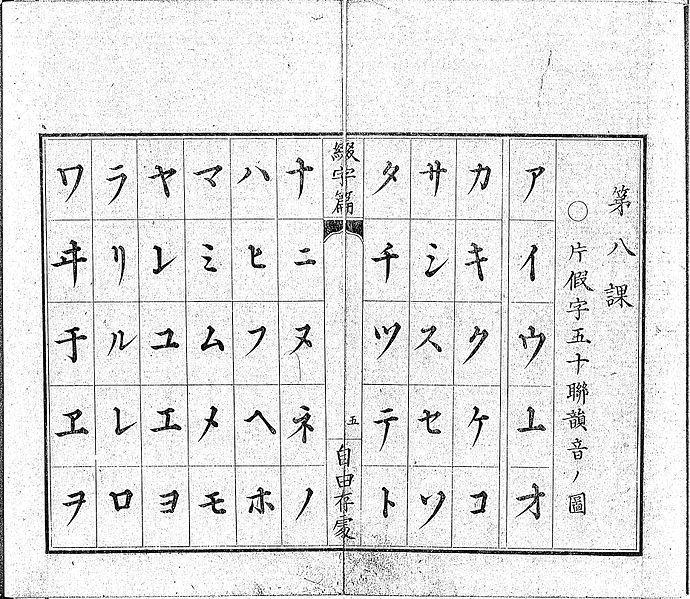 第八課
○片假字五十聯韻音ノ圖
アイウ𛀀オ
カキクケコ
サシスセソ
タチツテト
綴字篇
五
自由存處
ナニヌネノ
ハヒフヘホ
マミムメモ
ヤ𛄠ユエヨ
ラリルレロ
ワヰ𛄢ヱヲ